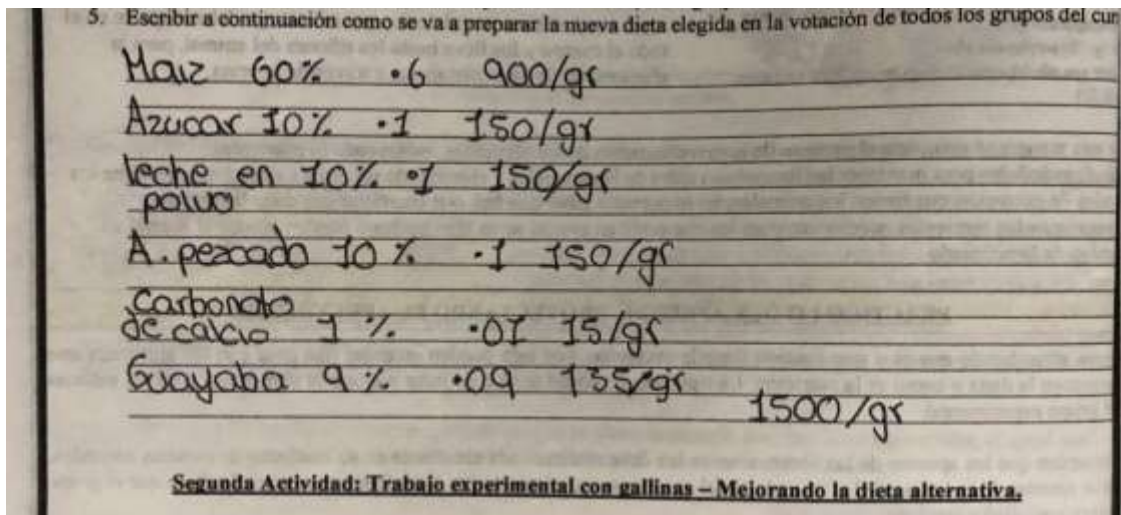 5. Escribir a continuación como se va a preparar la nueva dieta elegida en la votación de todos los grupos del cur
Maiz 60% .6 900/gr
Azucar 10% .1 150/gr
leche en 10% .1 150/gr
polvo
A. pezcado 10% .1 150/gr
Carbonato
de calcio 1% .01 15/gr
Guayaba 9% .09 135/gr
1500/gr
Segunda Actividad: Trabajo experimental con gallinas – Mejorando la dieta alternativa.